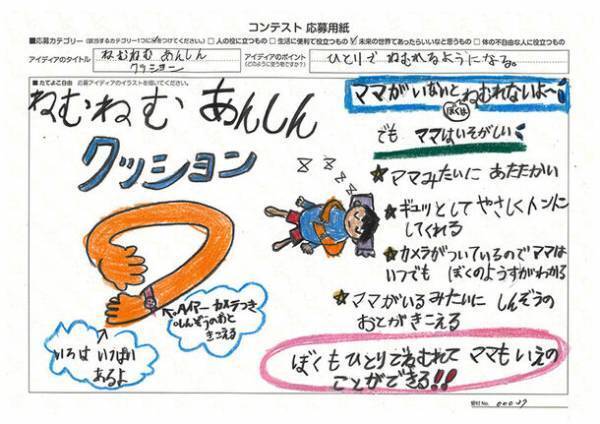 コンテスト 応募用紙
■応募カテゴリー(該当するカテゴリー1つに✓をつけてください。) □ 人の役に立つもの □ 生活に便利で役立つもの ✓ 未来の世界であったらいいなと思うもの □ 体の不自由な人に役立つもの
アイディアのタイトル
ねむねむ あんしん
クッション
アイディアのポイント
(どのように使う物ですか?)
ひとりで ねむれるようになる。
■ たてよこ自由 応募アイディアのイラストを描いてください。
ねむねむ あんしん
クッション
ママがいないと ねむれないよ~
ぼくは
でも ママはいそがしい
★ママみたいに あたたかい
★ギュッとして やさしくトントン
してくれる
★カメラがついているのでママは
いつでも ぼくのようすがわかる
★ママがいるみたいに しんぞうの
おとがきこえる
カメラつき
・しんぞうのおと
きこえる
いろは いっぱい
あるよ
ぼくもひとりでねむれて ママもいえの
ことができる!!